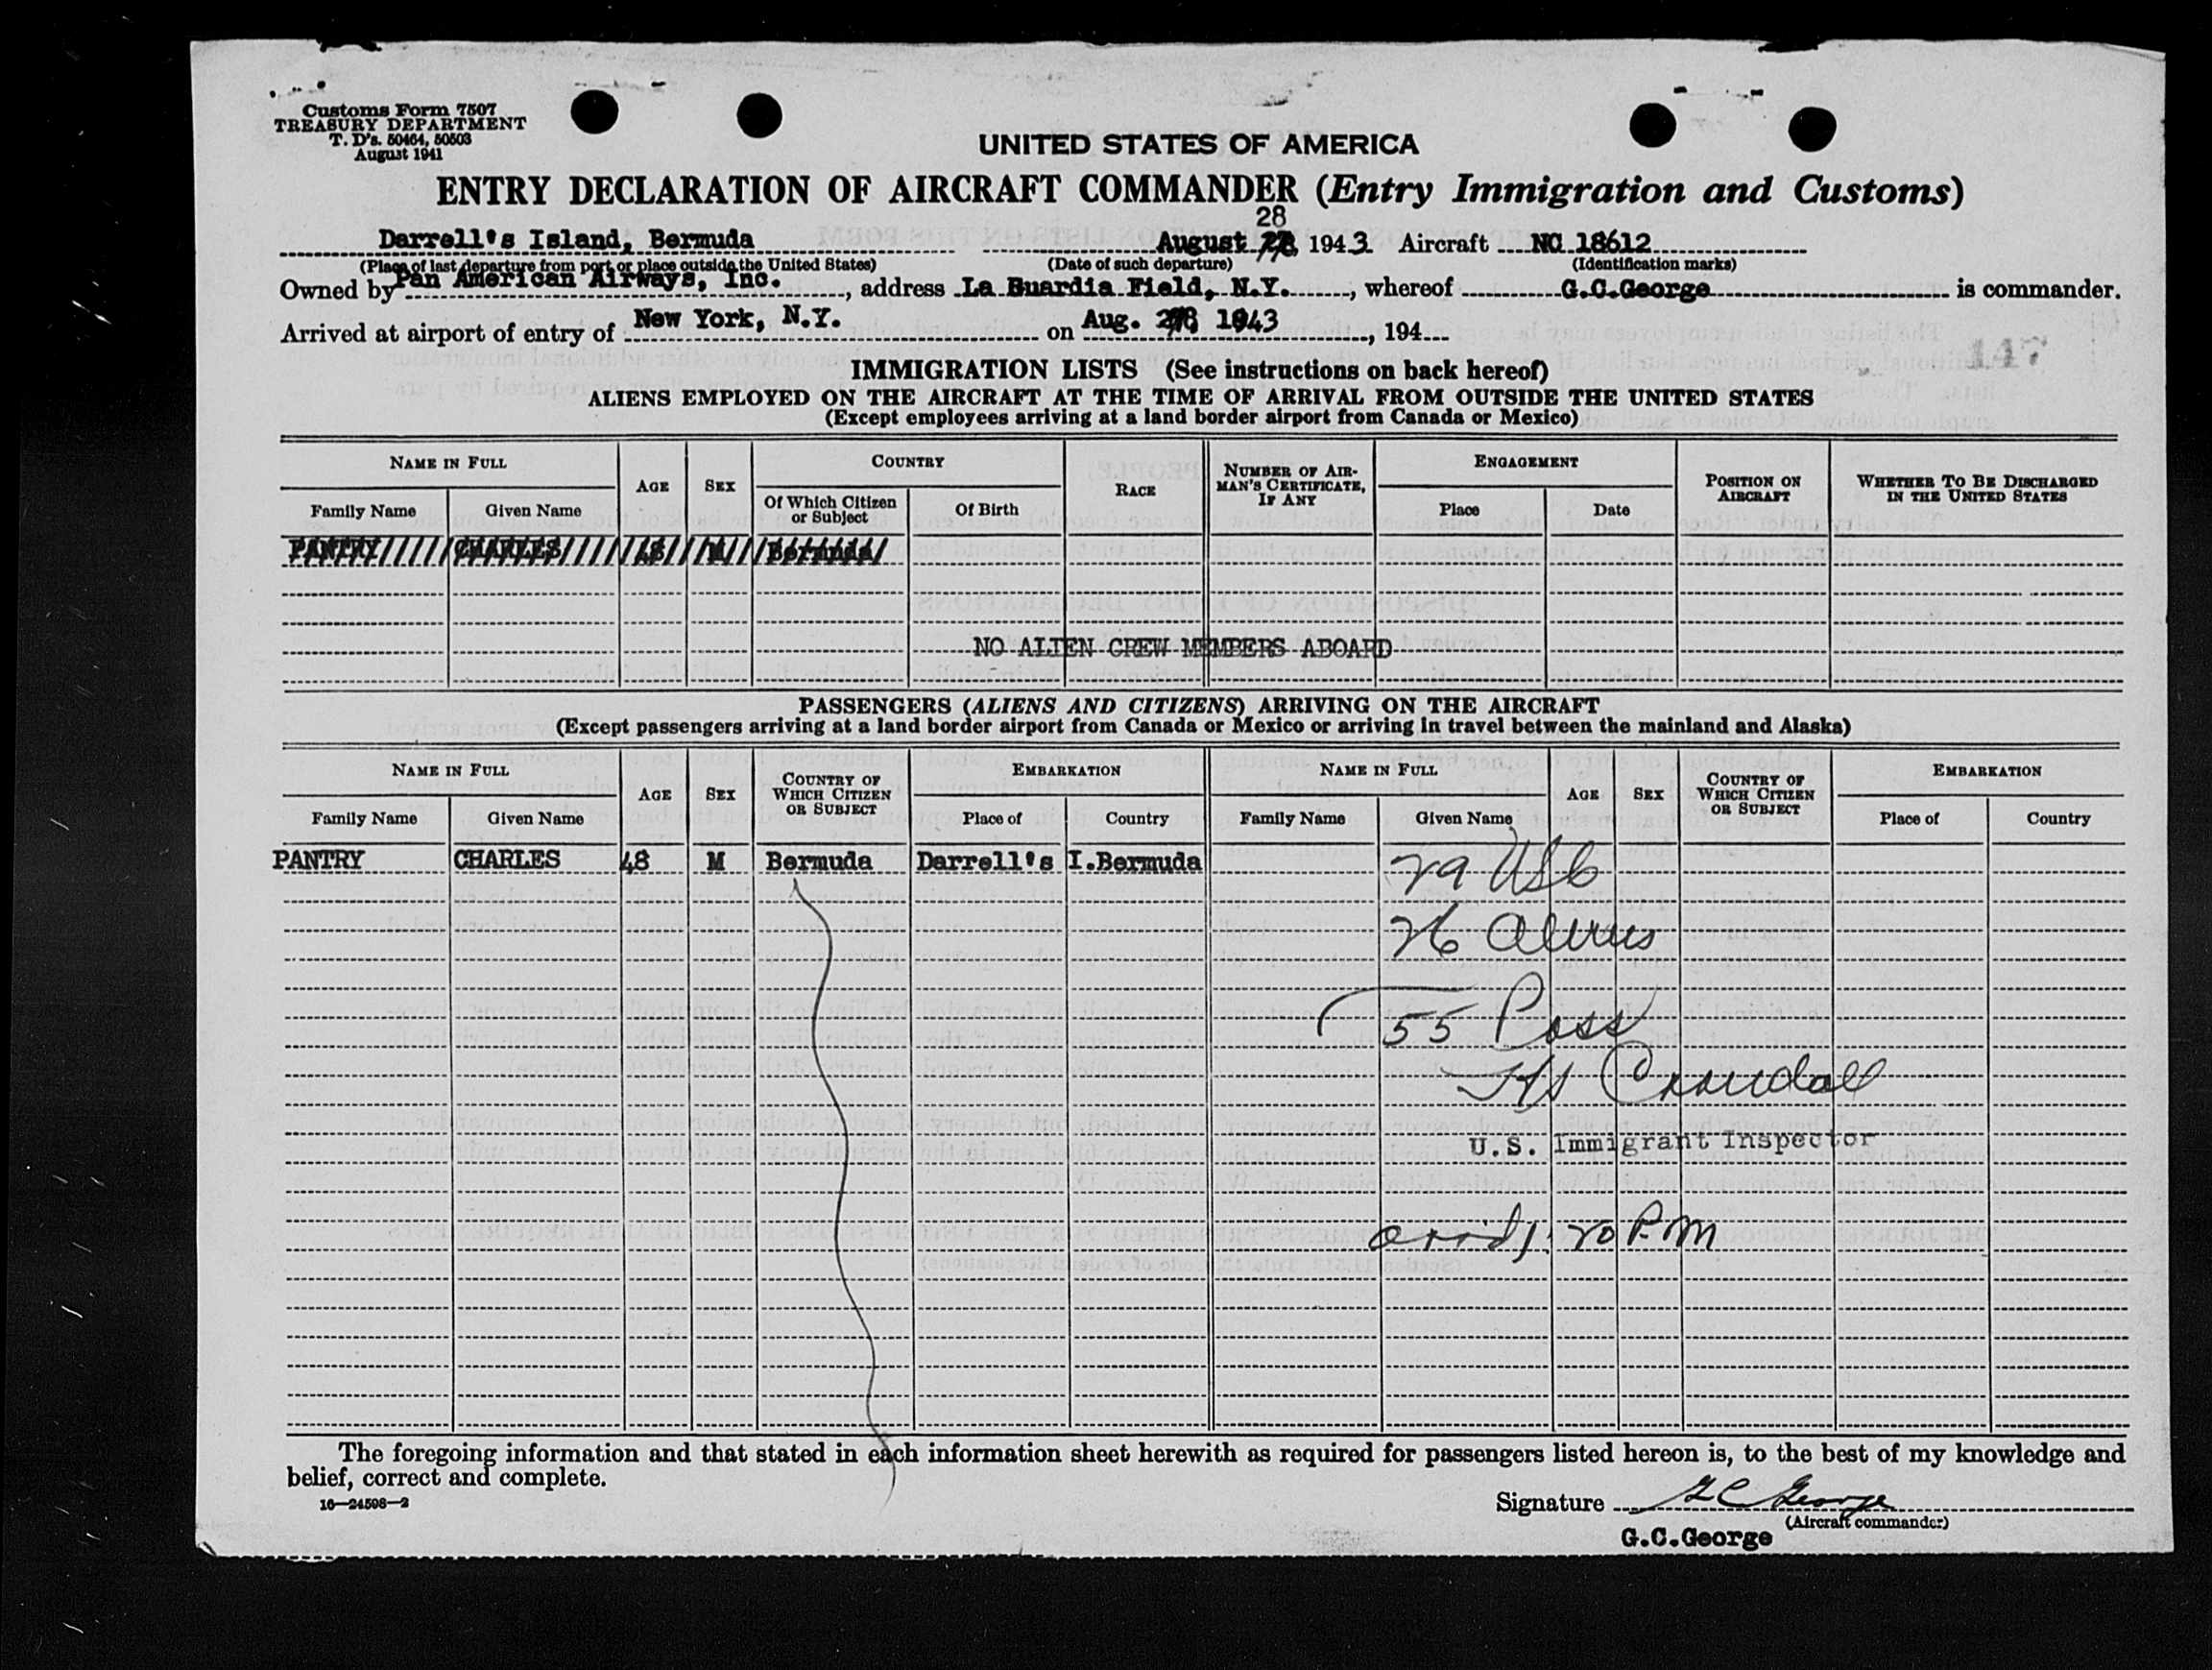 Customs Form 7507
TREASURY DEPARTMENT
T. D's. 50464, 50503
August 1941
UNITED STATES OF AMERICA
ENTRY DECLARATION OF AIRCRAFT COMMANDER (Entry Immigration and Customs)
28
Darrell's Island, Bermuda August 1943 Aircraft NC 18612
(Place of last departure from port or place outside the United States) (Date of such departure) (Identification marks)
Owned by Pan American Airways, Inc., address La Guardia Field, N.Y., whereof G.C.George is commander.
Arrived at airport of entry of New York, N.Y. on Aug. 28, 1943, 194
147
IMMIGRATION LISTS (See instructions on back hereof)
ALIENS EMPLOYED ON THE AIRCRAFT AT THE TIME OF ARRIVAL FROM OUTSIDE THE UNITED STATES
(Except employees arriving at a land border airport from Canada or Mexico)
NAME IN FULL AGE SEX COUNTRY RACE NUMBER OF AIRMAN'S CERTIFICATE, IF ANY ENGAGEMENT POSITION ON AIRCRAFT WHETHER TO BE DISCHARGED IN THE UNITED STATES
Family Name Given Name Of Which Citizen or Subject Of Birth Place Date
PANTRY CHARLES 48 M Bermuda
NO ALIEN CREW MEMBERS ABOARD
PASSENGERS (ALIENS AND CITIZENS) ARRIVING ON THE AIRCRAFT
(Except passengers arriving at a land border airport from Canada or Mexico or arriving in travel between the mainland and Alaska)
NAME IN FULL AGE SEX COUNTRY OF WHICH CITIZEN OR SUBJECT EMBARKATION NAME IN FULL AGE SEX COUNTRY OF WHICH CITIZEN OR SUBJECT EMBARKATION
Family Name Given Name Place of Country Family Name Given Name Place of Country
PANTRY CHARLES 48 M Bermuda Darrell's I.Bermuda
29 USC
26 Aliens
55 Pass
Crandall
U.S. Immigrant Inspector
arrid 1:20 P.M
The foregoing information and that stated in each information sheet herewith as required for passengers listed hereon is, to the best of my knowledge and
belief, correct and complete.
16—24508—2
Signature G C George
(Aircraft commander)
G.C.George